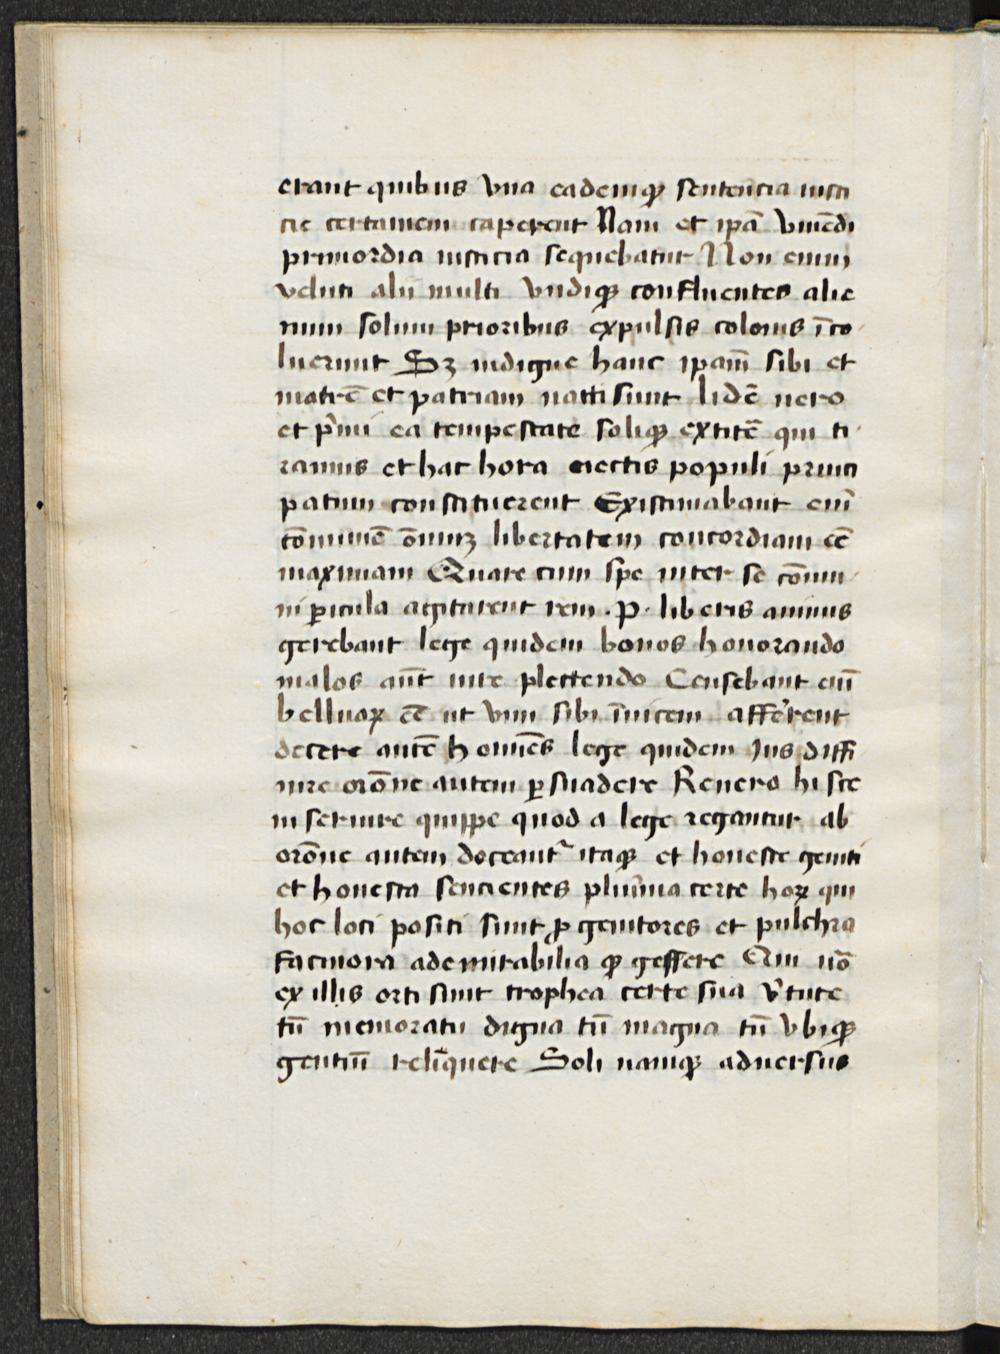 erant quibus vna eademqȝ sentencia iusti
cie certamen caperent Nam et ip̄a viuēdi
primordia iusticia sequebatur Non enim
veluti alii multi vndiqȝ confluentes alie
num solum prioribus expulsis colonis īco
luerunt Sȝ indigne hanc ipam̄ sibi et
matrē et patriam natti sunt Iidē uero
et p̄mi ea tempestate soliqȝ extitē qui ti
rannis et hac hora eiectis populi princi
patum constituerent Existimabant eni̅
cōmunē ōniuȝ libertatem concordiam eē
maximam Quare cum spe inter se cōmu
ni ꝑicula agitarent rem .P. liberis animis
gerebant lege quidem bonos honorando
malos aūt iure plectendo Censebant eni̅
belluaꝝ eē ut vim sibi īuicem afferent
decere autē homiēs lege quidem Jus diffi
nire orōne autem ꝑsuadere Reuero hisce
inseruire quippe quod a lege regantur ab
orōne autem doceant᷑ itaqȝ et honeste geniti
et honesta sencientes plurima certe hoꝝ qui
hoc loci positi sunt ꝓgenitores et pulchra
facinora ademirabilia qȝ gessere Qui uō
ex illis orti sunt trophea certe sua v̄tute
tū memoratu digna tū magna tū vbiqȝ
gentiū relīquere Soli namqȝ aduersus